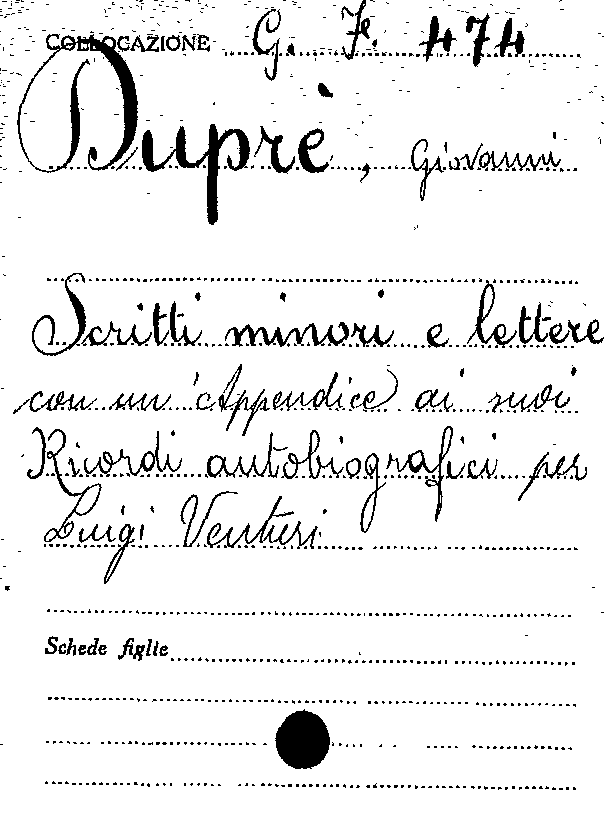 COLLOCAZIONE G. F. 474
Duprè, Giovanni
Scritti minori e lettere
con un' Appendice ai suoi
Ricordi autobiografici per
Luigi Venturi
Schede figlie